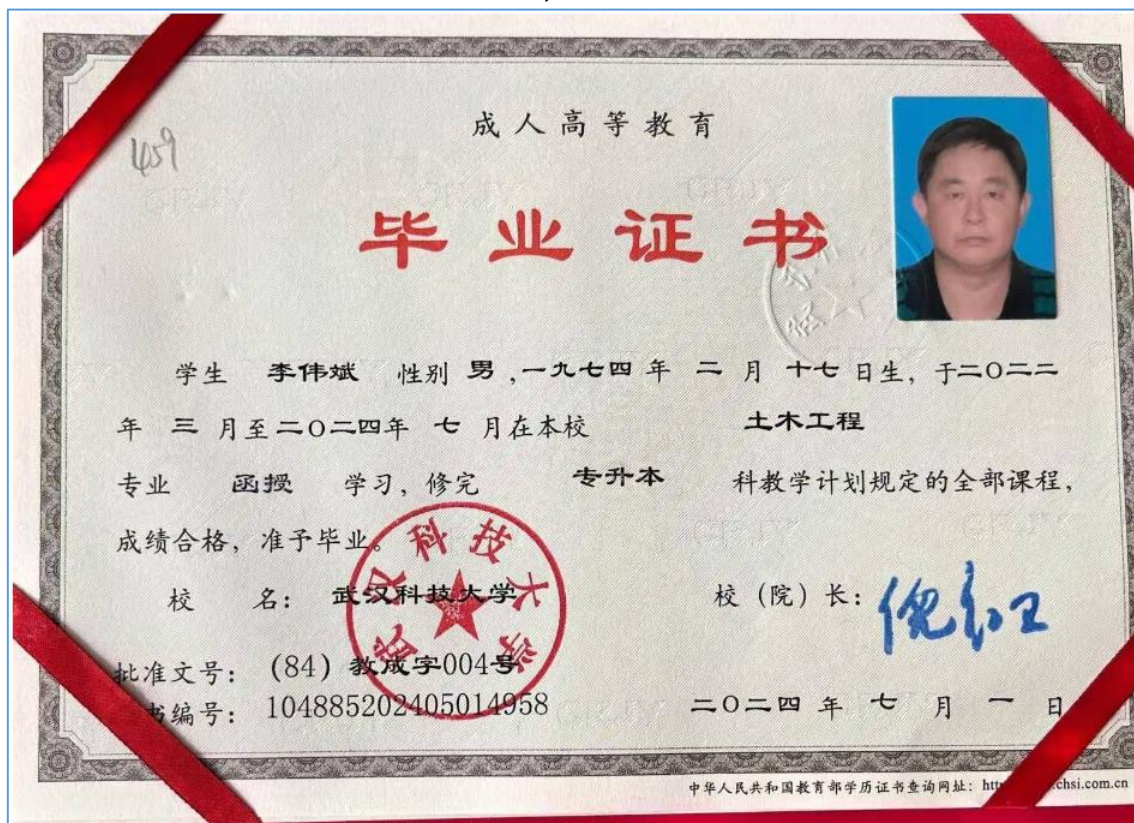 成人高等教育
459
毕业证书
学生 李伟斌 性别 男 ,一九七四 年 二 月 十七 日生, 于二〇二二
年 三 月至二〇二四年 七 月在本校 土木工程
专业 函授 学习, 修完 专升本 科教学计划规定的全部课程,
成绩合格, 准予毕业。
校 名: 武汉科技大学
校 (院) 长:
武汉科技大学
批准文号: (84) 教成字004号
书编号: 104885202405014958
二〇二四 年 七 月 一 日
中华人民共和国教育部学历证书查询网址: htt chsi.com.cn